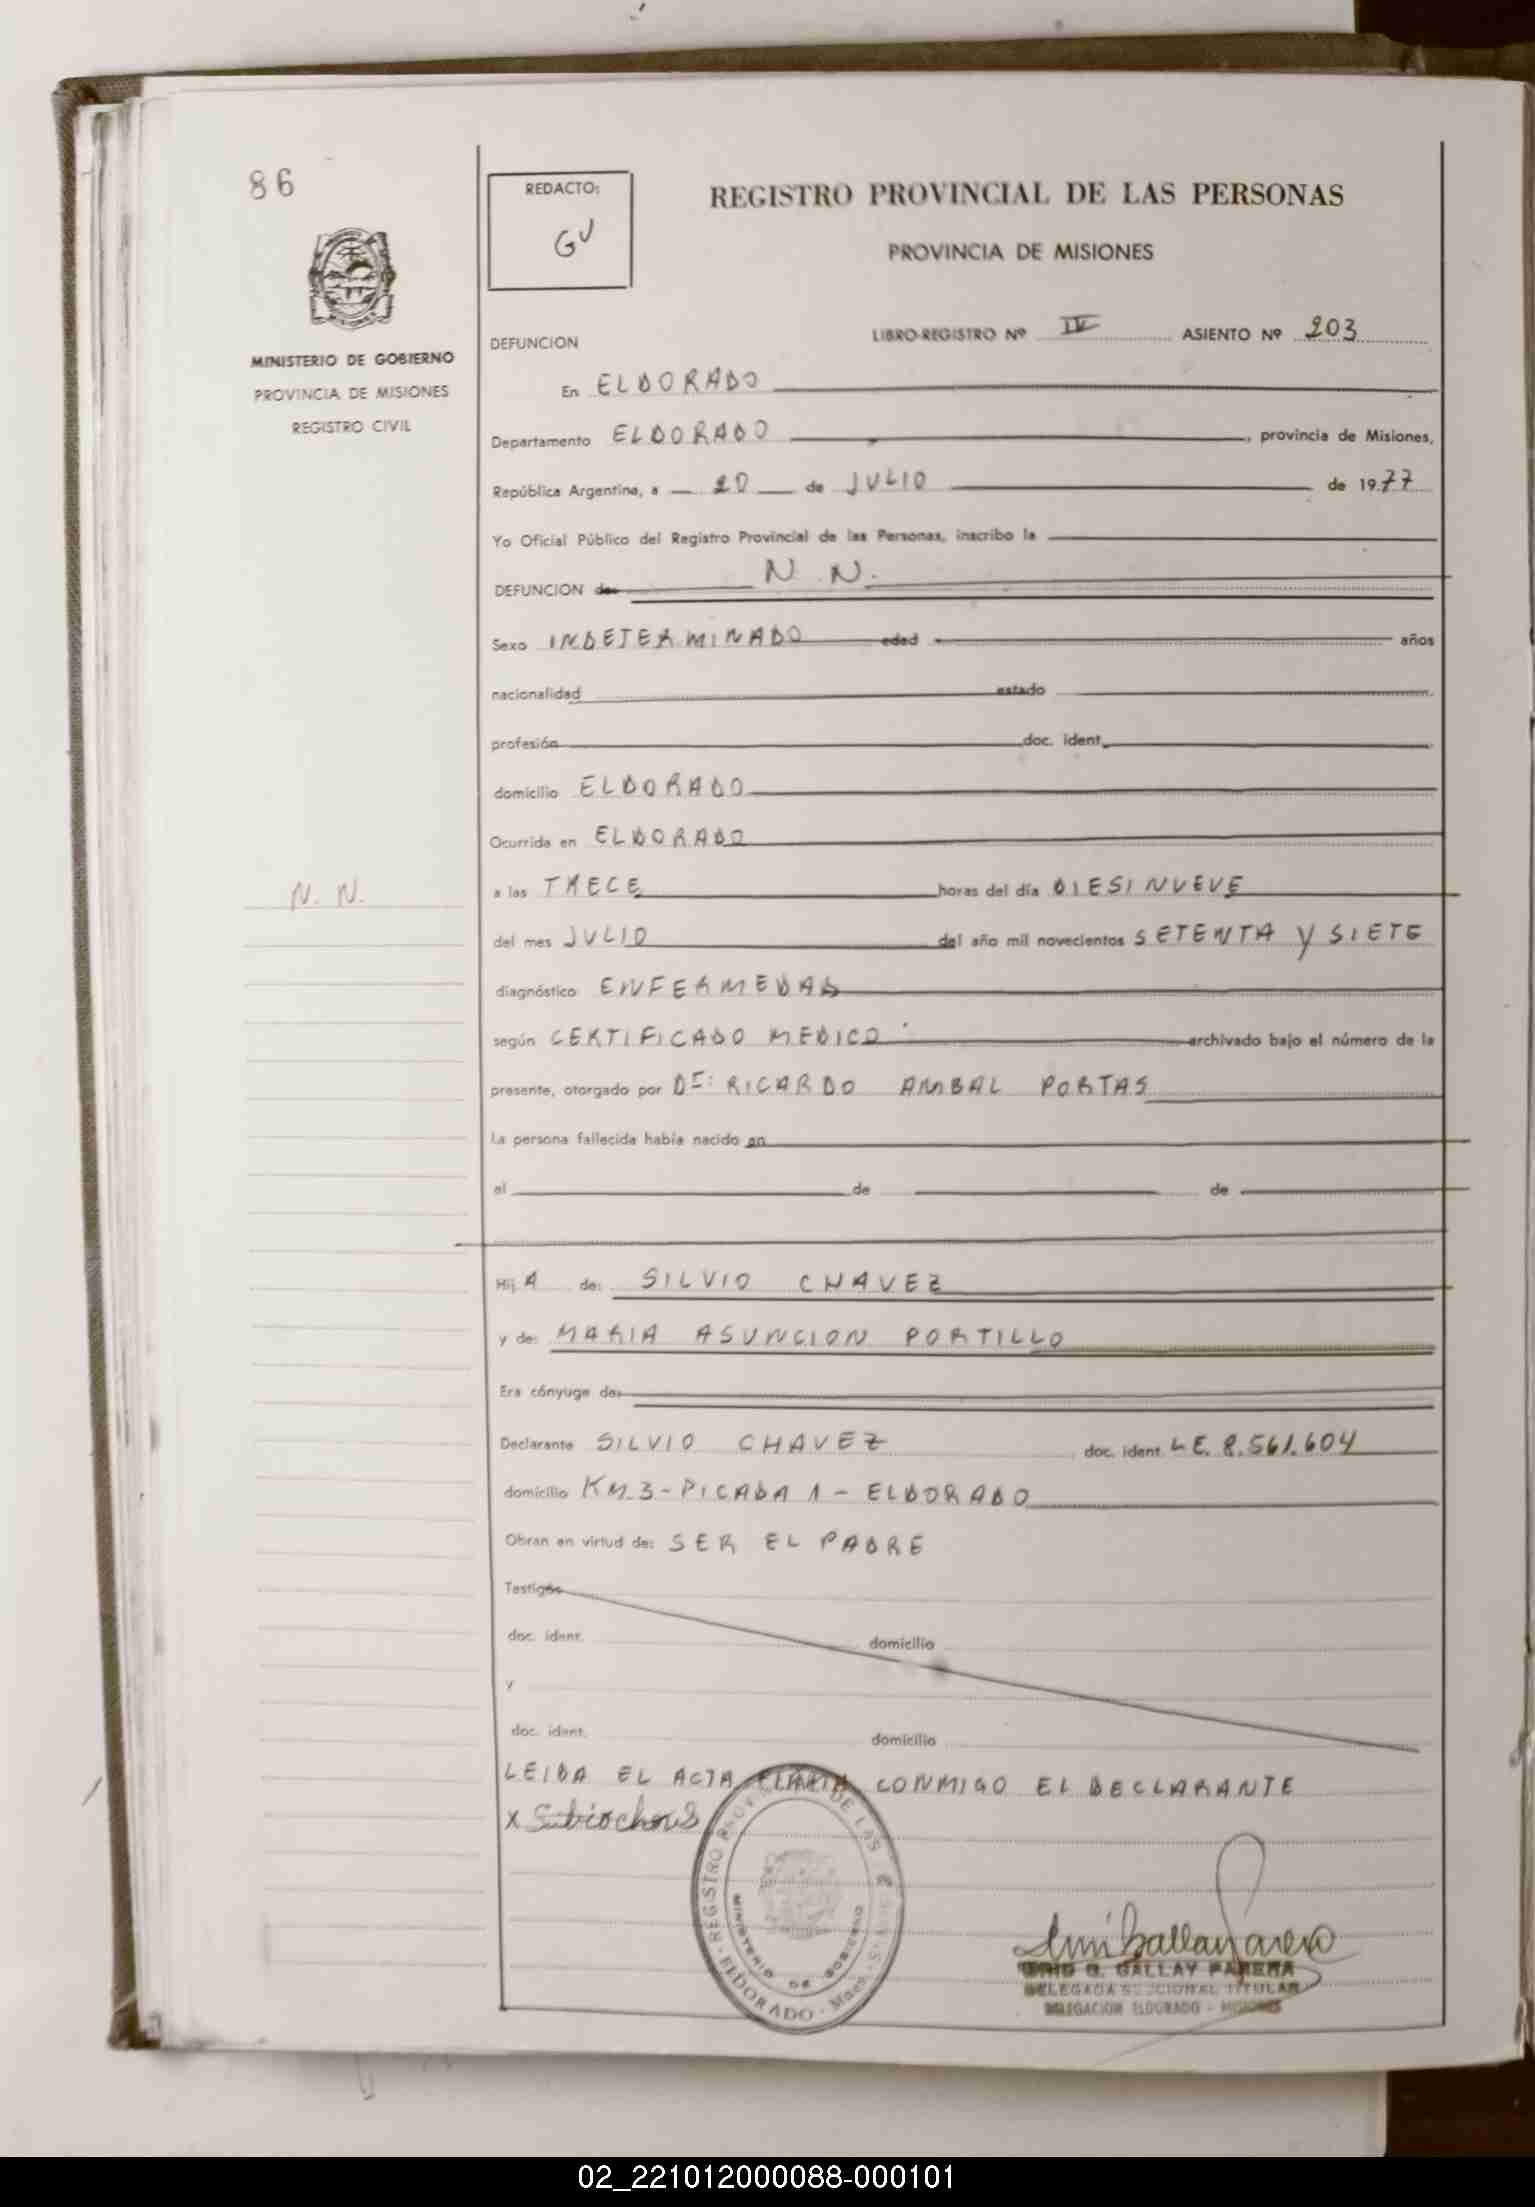 86
REDACTO:
GV
REGISTRO PROVINCIAL DE LAS PERSONAS
PROVINCIA DE MISIONES
MINISTERIO DE GOBIERNO
PROVINCIA DE MISIONES
REGISTRO CIVIL
DEFUNCION
LIBRO-REGISTRO Nº IV ASIENTO Nº 203
En ELDORADO
Departamento ELDORADO, provincia de Misiones,
República Argentina, a 20 de JULIO de 1977
Yo Oficial Público del Registro Provincial de las Personas, inscribo la
DEFUNCION de N. N.
Sexo INDETERMINADO edad años
nacionalidad estado
profesión doc. ident.
domicilio ELDORADO
Ocurrida en ELDORADO
N. N.
a las TRECE horas del día DIESINUEVE
del mes JULIO del año mil novecientos SETENTA Y SIETE
diagnóstico: ENFERMEDAD
según CERTIFICADO MEDICO archivado bajo el número de la
presente, otorgado por Dr: RICARDO AMBAL PORTAS
La persona fallecida había nacido en
el de de
Hij A de: SILVIO CHAVEZ
y de: MARIA ASUNCION PORTILLO
Era cónyuge de:
Declarante SILVIO CHAVEZ doc. ident. L.E. 8.561.604
domicilio KM 3 - PICADA 1 - ELDORADO
Obran en virtud de: SER EL PADRE
Testigos
doc. ident. domicilio
y
doc. ident. domicilio
LEIDA EL ACTA CONMIGO EL DECLARANTE
x
REGISTRO PROVINCIAL DE LAS
MINISTERIO DE GOBIERNO
ELDORADO - Mnes.
G. GALLAY PARERA
DELEGADA SECCIONAL TITULAR
DELEGACION ELDORADO - MISIONES
02_221012000088-000101